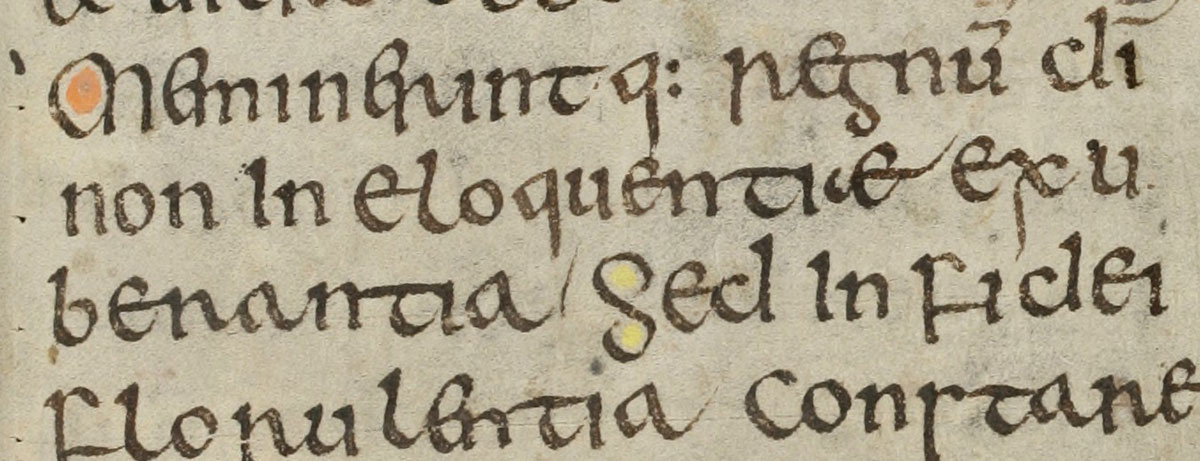 Meminerintq: regnū dī
non in eloquentiae exu
berantia sed in fidei
florulentia constare